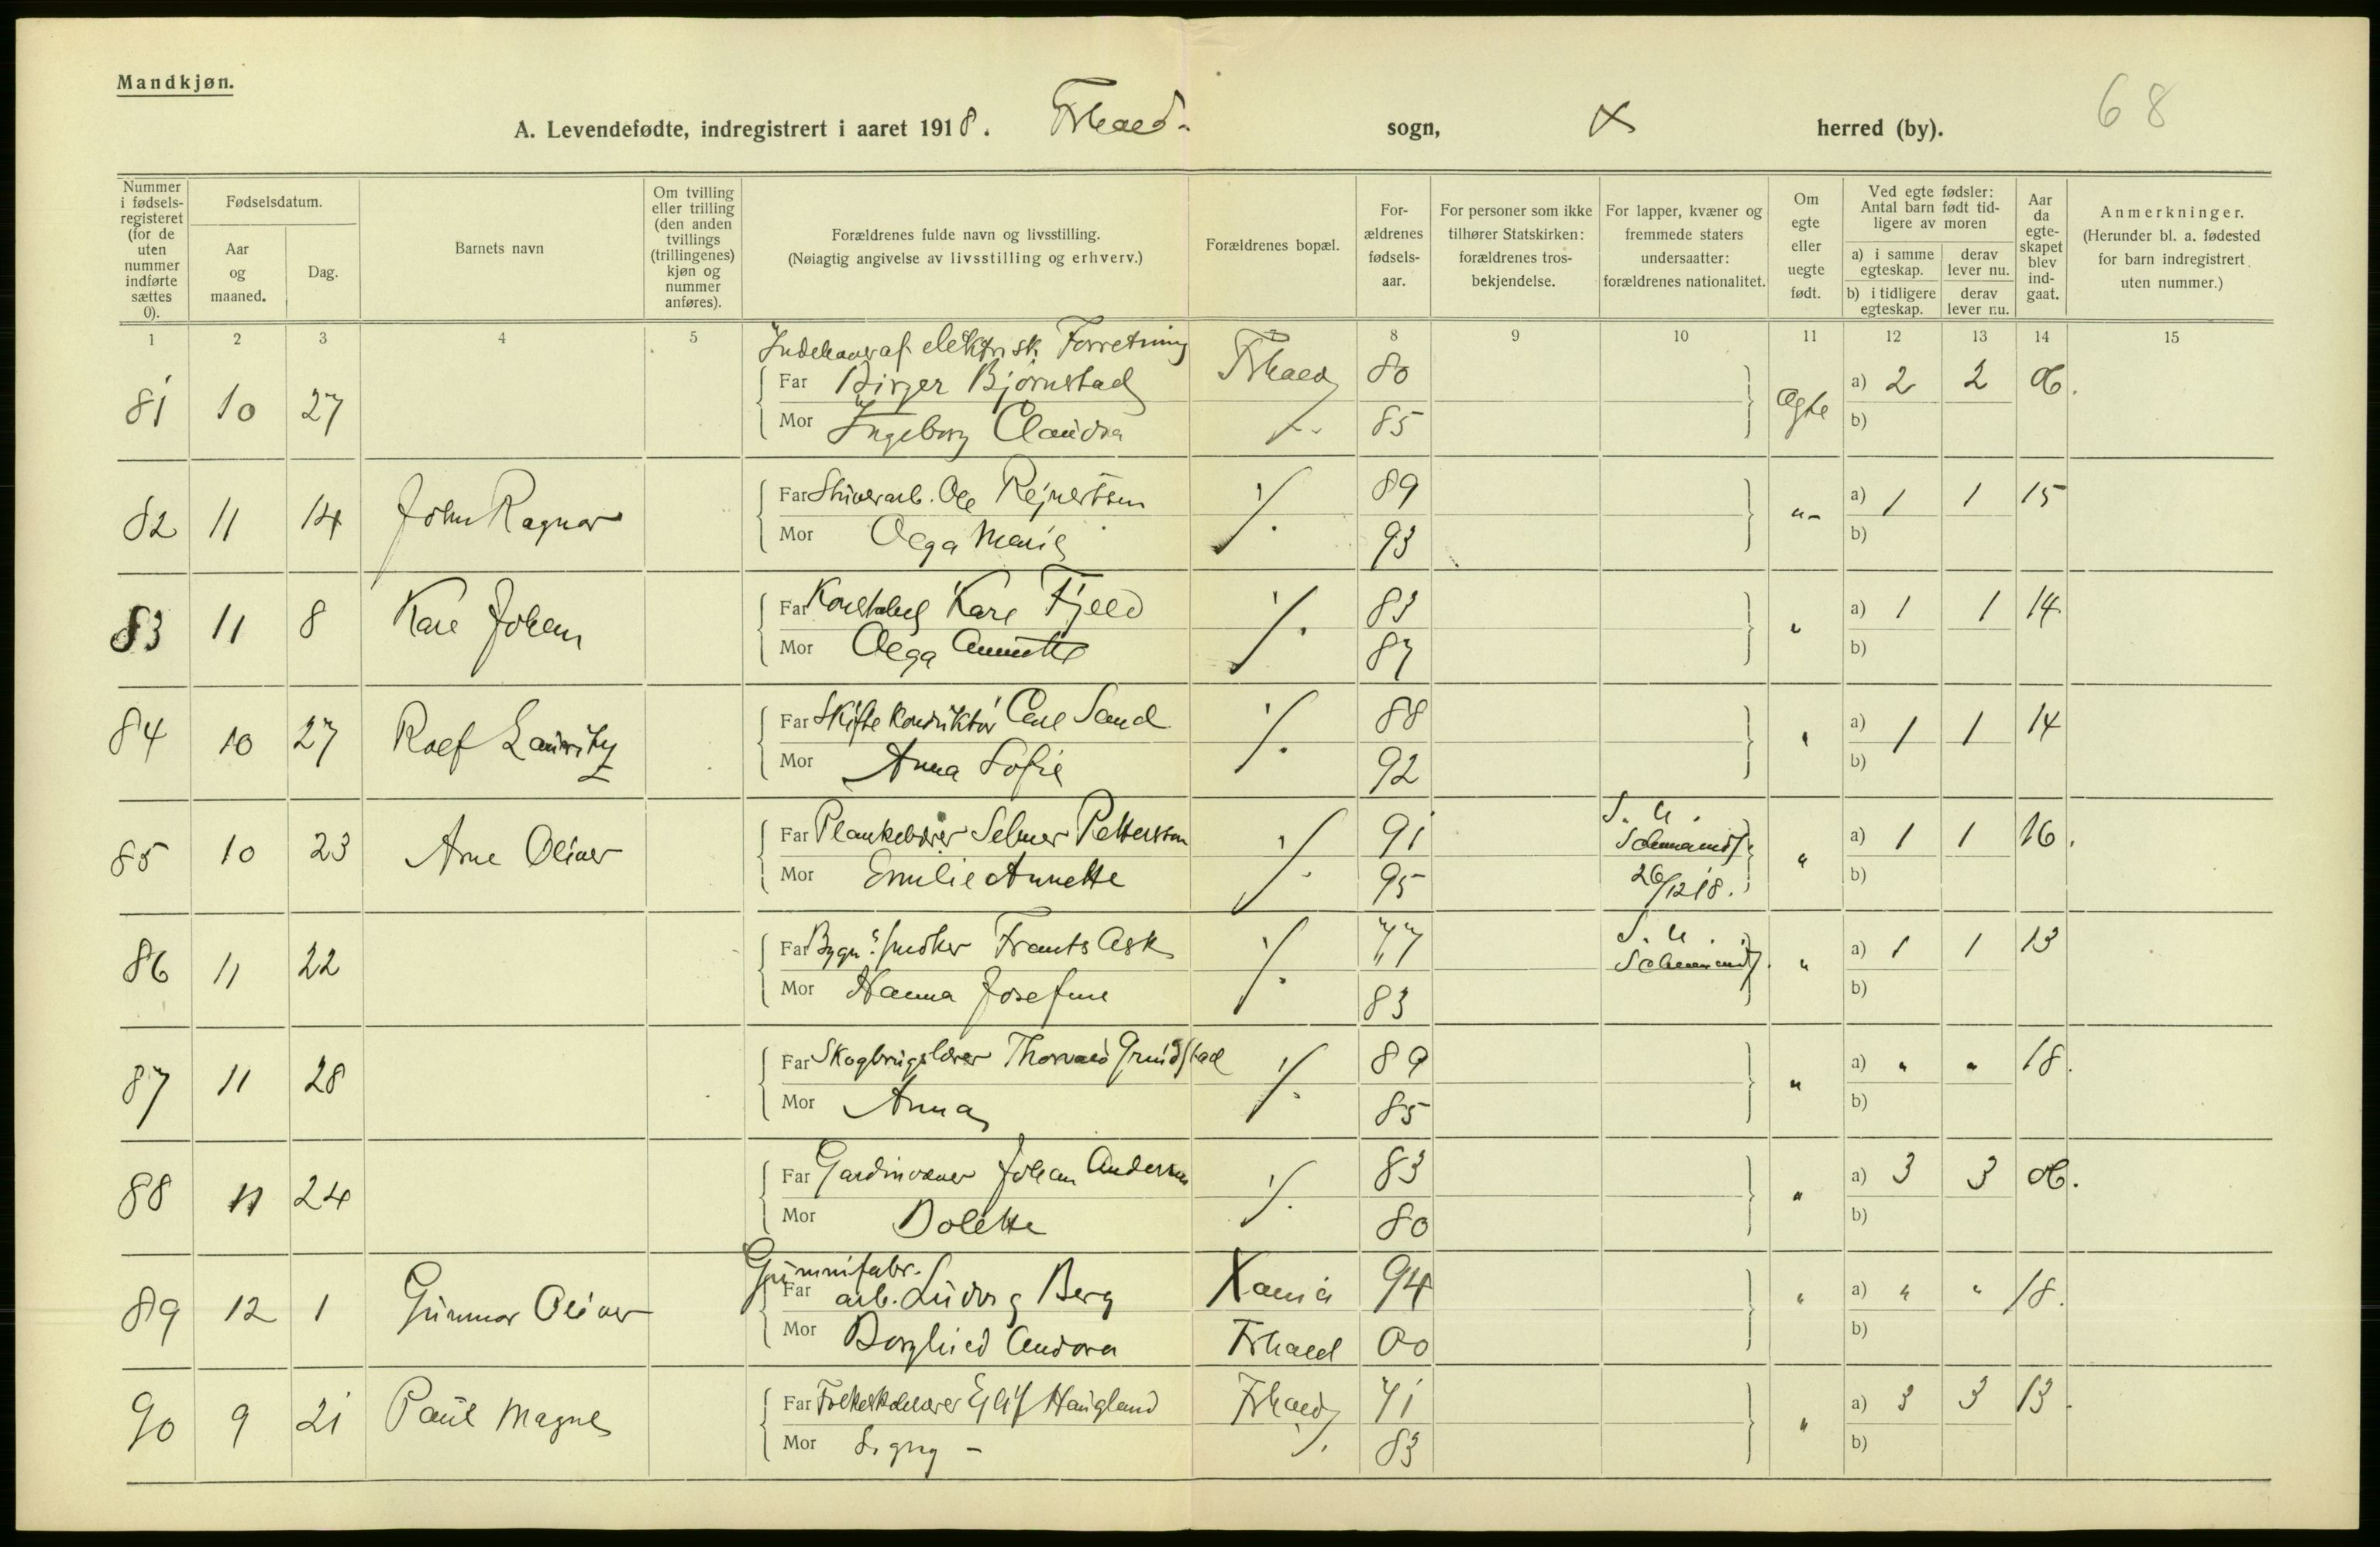 Mandkjøn.
A. Levendefødte, indregistrert i aaret 1918. Frhald. sogn, herred (by).
68
Nummer i fødsels-registeret (for de uten nummer indførte sættes 0).
Fødselsdatum.
Aar og maaned.
Dag.
Barnets navn
Om tvilling eller trilling (den anden tvillings (trillingenes) kjøn og nummer anføres).
Forældrenes fulde navn og livsstilling.
(Nøiagtig angivelse av livsstilling og erhverv.)
Forældrenes bopæl.
For-ældrenes fødsels-aar.
For personer som ikke tilhører Statskirken: forældrenes tros-bekjendelse.
For lapper, kvæner og fremmede staters undersaatter: forældrenes nationalitet.
Om egte eller uegte født.
Ved egte fødsler: Antal barn født tid-ligere av moren
a) i samme egteskap.
derav lever nu.
b) i tidligere egteskap.
derav lever nu.
Aar da egte-skapet blev ind-gaat.
Anmerkninger.
(Herunder bl. a. fødested for barn indregistrert uten nummer.)
1 2 3 4 5 8 9 10 11 12 13 14 15
Indehaver af elektrisk Forretning
81 10 27 Far Birger Bjørnstad Frhald 80 Ægte a) 2 2 06.
Mor Ingeborg Claudia 85 b)
82 11 14 John Ragnar Far Ole Rejnertsen ./. 89 "- a) 1 1 15
Mor Olga Marie 93 b)
83 11 8 Kare Johan Far Karl Fjeld ./. 83 " a) 1 1 14
Mor Olga Annette 87 b)
84 10 27 Rolf Lauritz Far Skifte konduktør Carl Sand ./. 88 " a) 1 1 14
Mor Anna Sofie 92 b)
85 10 23 Arne Oliver Far Plankebærer Selmer Pettersson ./. 91 S. U. " a) 1 1 16.
Mor Emilie Annette 95 26/12 18. b)
86 11 22 Far Bygn.s snedker Frants Ask ./. 77 S. U. " a) 1 1 13
Mor Hanna Josefine 83 b)
87 11 28 Far Skogbrugslærer Thorvald Grundstad ./. 89 " a) " " 18.
Mor Anna 85 b)
88 11 24 Far Gardinvæver Johan Andersen ./. 83 " a) 3 3 06.
Mor Bolette 80 b)
Gummifabr.
89 12 1 Gunnar Oliver Far arb. Ludvig Berg Xania 94 " a) " " 18.
Mor Borghild Andora Frhald 00 b)
90 9 21 Paul Magne Far Folkeskolelærer Eilif Haugland Frhald 71 " a) 3 3 13.
Mor Signy - ./. 83 b)